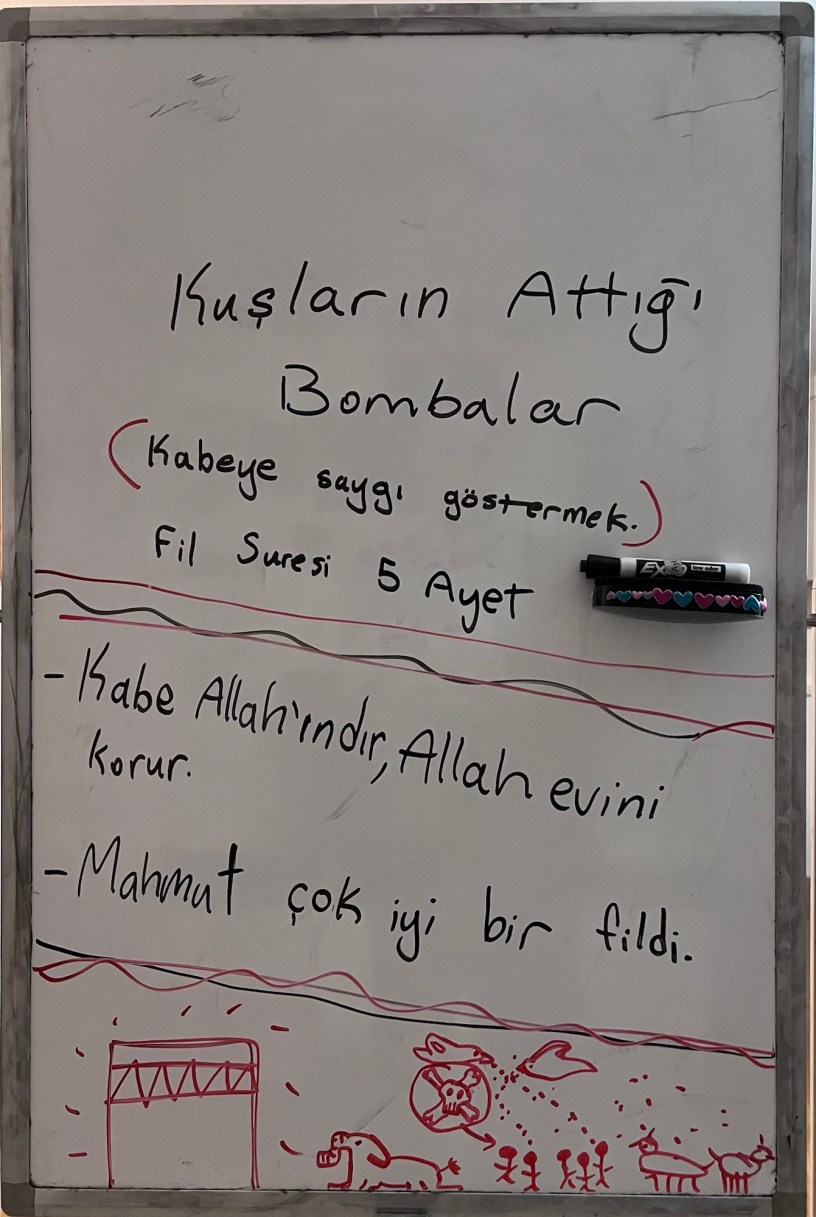 Kuşların Attığı
Bombalar
(Kabeye saygı göstermek.)
Fil Suresi 5 Ayet
EXPO
- Kabe Allah'ındır, Allah evini
korur.
- Mahmut çok iyi bir fildi.